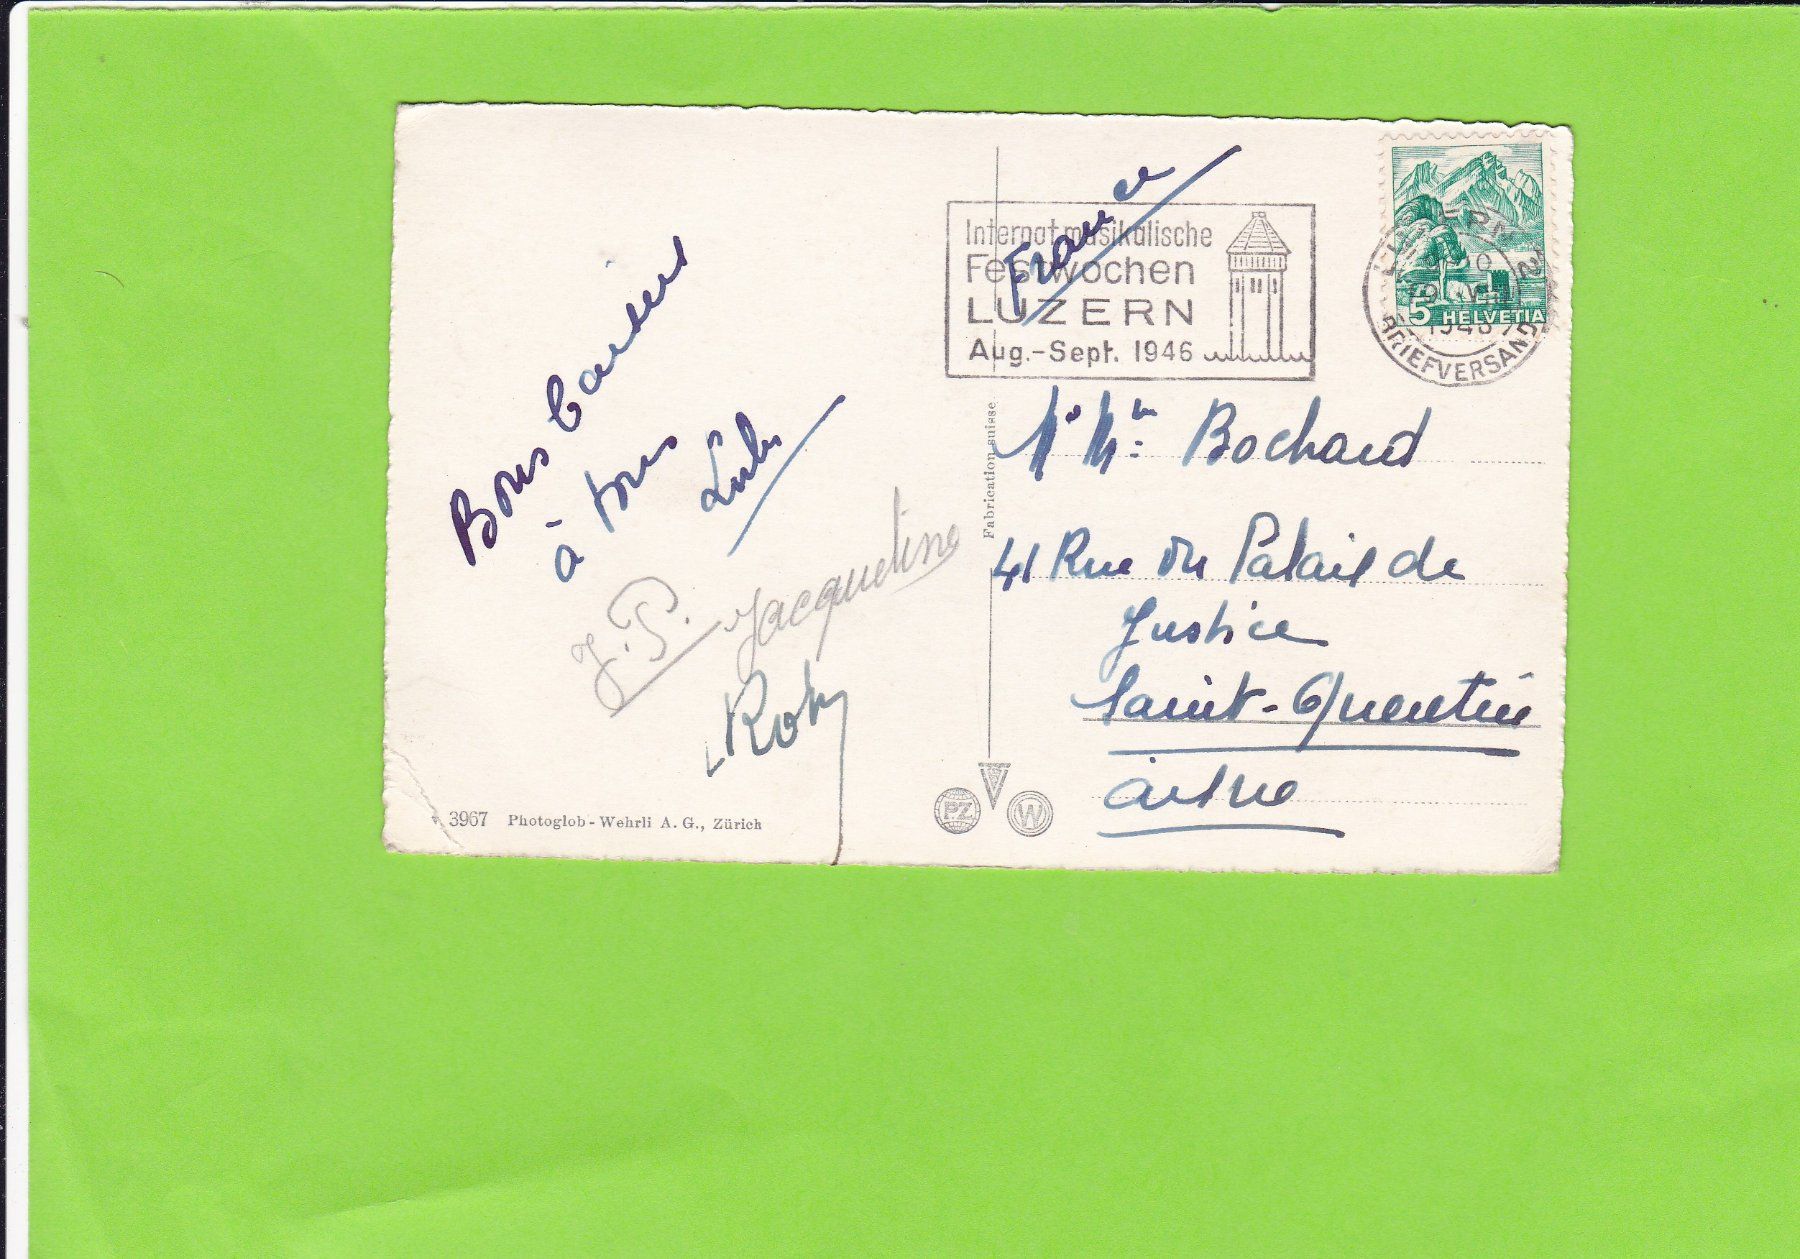 Bons baisers
à tous
J.P. Jacqueline
3967 Photoglob-Wehrli A. G., Zürich
Fabrication suisse
PZ
W
France
Internat. musikalische
Festwochen
LUZERN
Aug.-Sept. 1946
LUZERN 2
1946
BRIEFVERSAND
5 HELVETIA
Mr Mme Bochard
41 Rue du Palais de
Justice
Saint-Quentin
Aisne